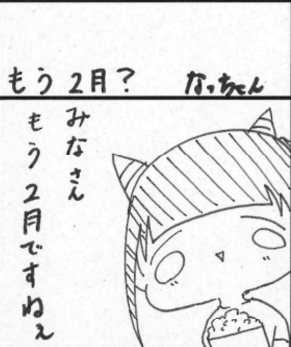 もう2月?
なっちゃん
みなさん
もう2月ですねぇ